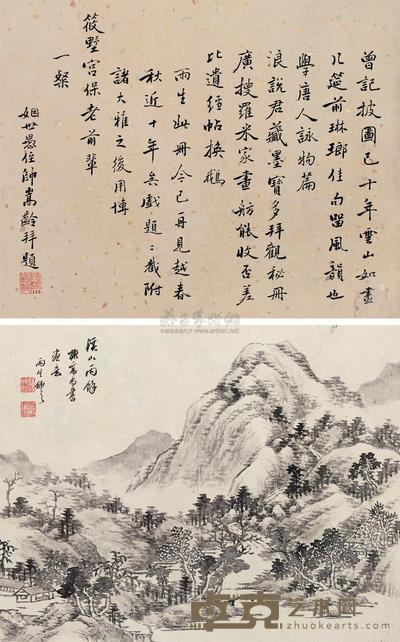 曾記披圖已十年雲山如畫
几筵前琳瑯佳句留風韻也
學唐人詠物篇
浪說君藏墨寶多拜觀秘冊
廣搜羅米家畫舫能收否差
比遺經帖換鵝
雨生此冊今已再見越春
秋近十年矣戲題二截附
諸大雅之後用博
筱墅宮保老前輩
一粲
姻世愚侄帥嵩齡拜題
溪山雨餘
雅齋art.artron.net
卓克艺术网
www.zhuokearts.com